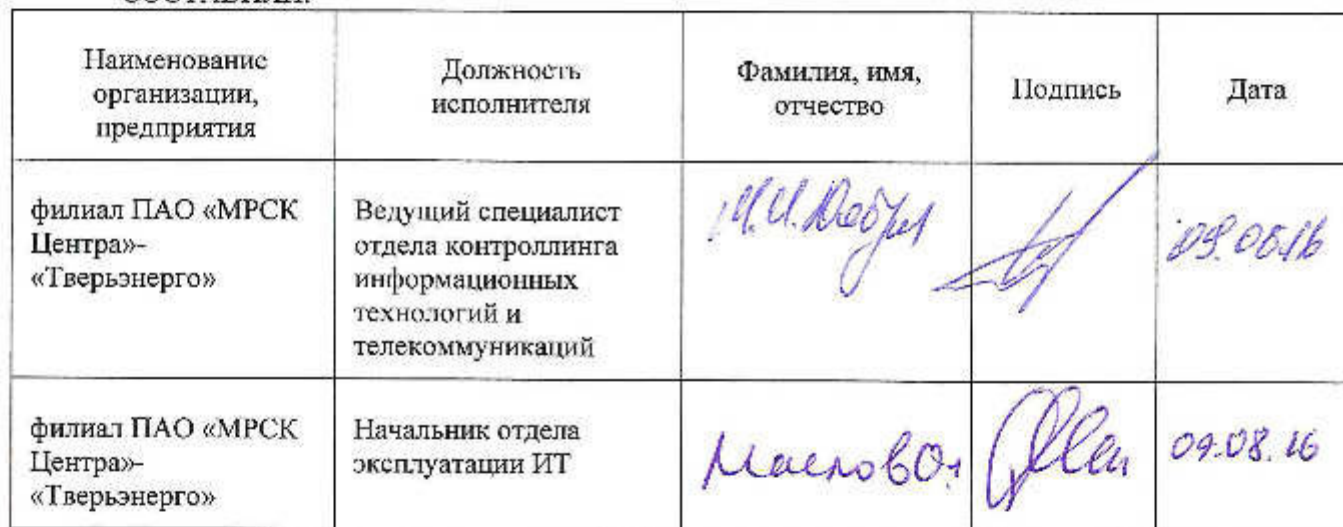 Наименование
организации,
предприятия
Должность
исполнителя
Фамилия, имя,
отчество
Подпись
Дата
филиал ПАО «МРСК
Центра»-
«Тверьэнерго»
Ведущий специалист
отдела контроллинга
информационных
технологий и
телекоммуникаций
филиал ПАО «МРСК
Центра»-
«Тверьэнерго»
Начальник отдела
эксплуатации ИТ
Маслов О.
09.08.16